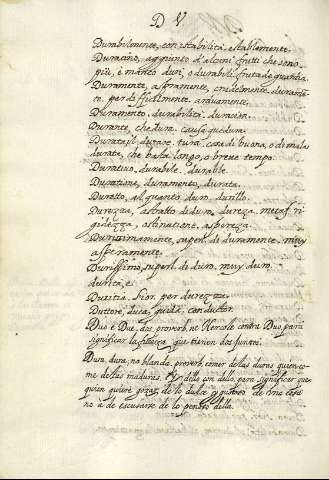 D V
Durabilmente, con stabilità, establemente.
Duracino, aggiunto d'alcuni frutti che sono
più, e manco duri, o durabili, fruta de guardia.
Duramente, aspramente, cruelmente, duramente
per difficilmente, arduamente.
Duramento, durabilità, duracion.
Durante, che dura, causa que dura.
Durata, il durare, tura, cosa di buona, o di mala
durata, che basta longo, o breve tempo.
Durativo, durabile, durable.
Duratione, duramento, durata.
Duretto, alquanto duro, durillo.
Durezza, astratto di duro, dureza, metaf. ri-
gidezza, ostinatione, aspereza.
Durissimamente, superl. di duramente, muy
asperamente.
Durissimo, superl. di duro, muy duro.
durità, e
Duritia, Fior. per durezza.
Duttore, duca, guida, conductor.
Duo è Due, dos, proverb. ne Hercole contra Duo para
significar la fuerza que tienen dos juntos.
Dura, dura, no blanda, proverb. comer de las duras quien co-
me de las maduras, dello con dello, para significar que
quien quiere gozar de lo dulce y gustoso de una cosa
no a de escusarse de lo penoso della.